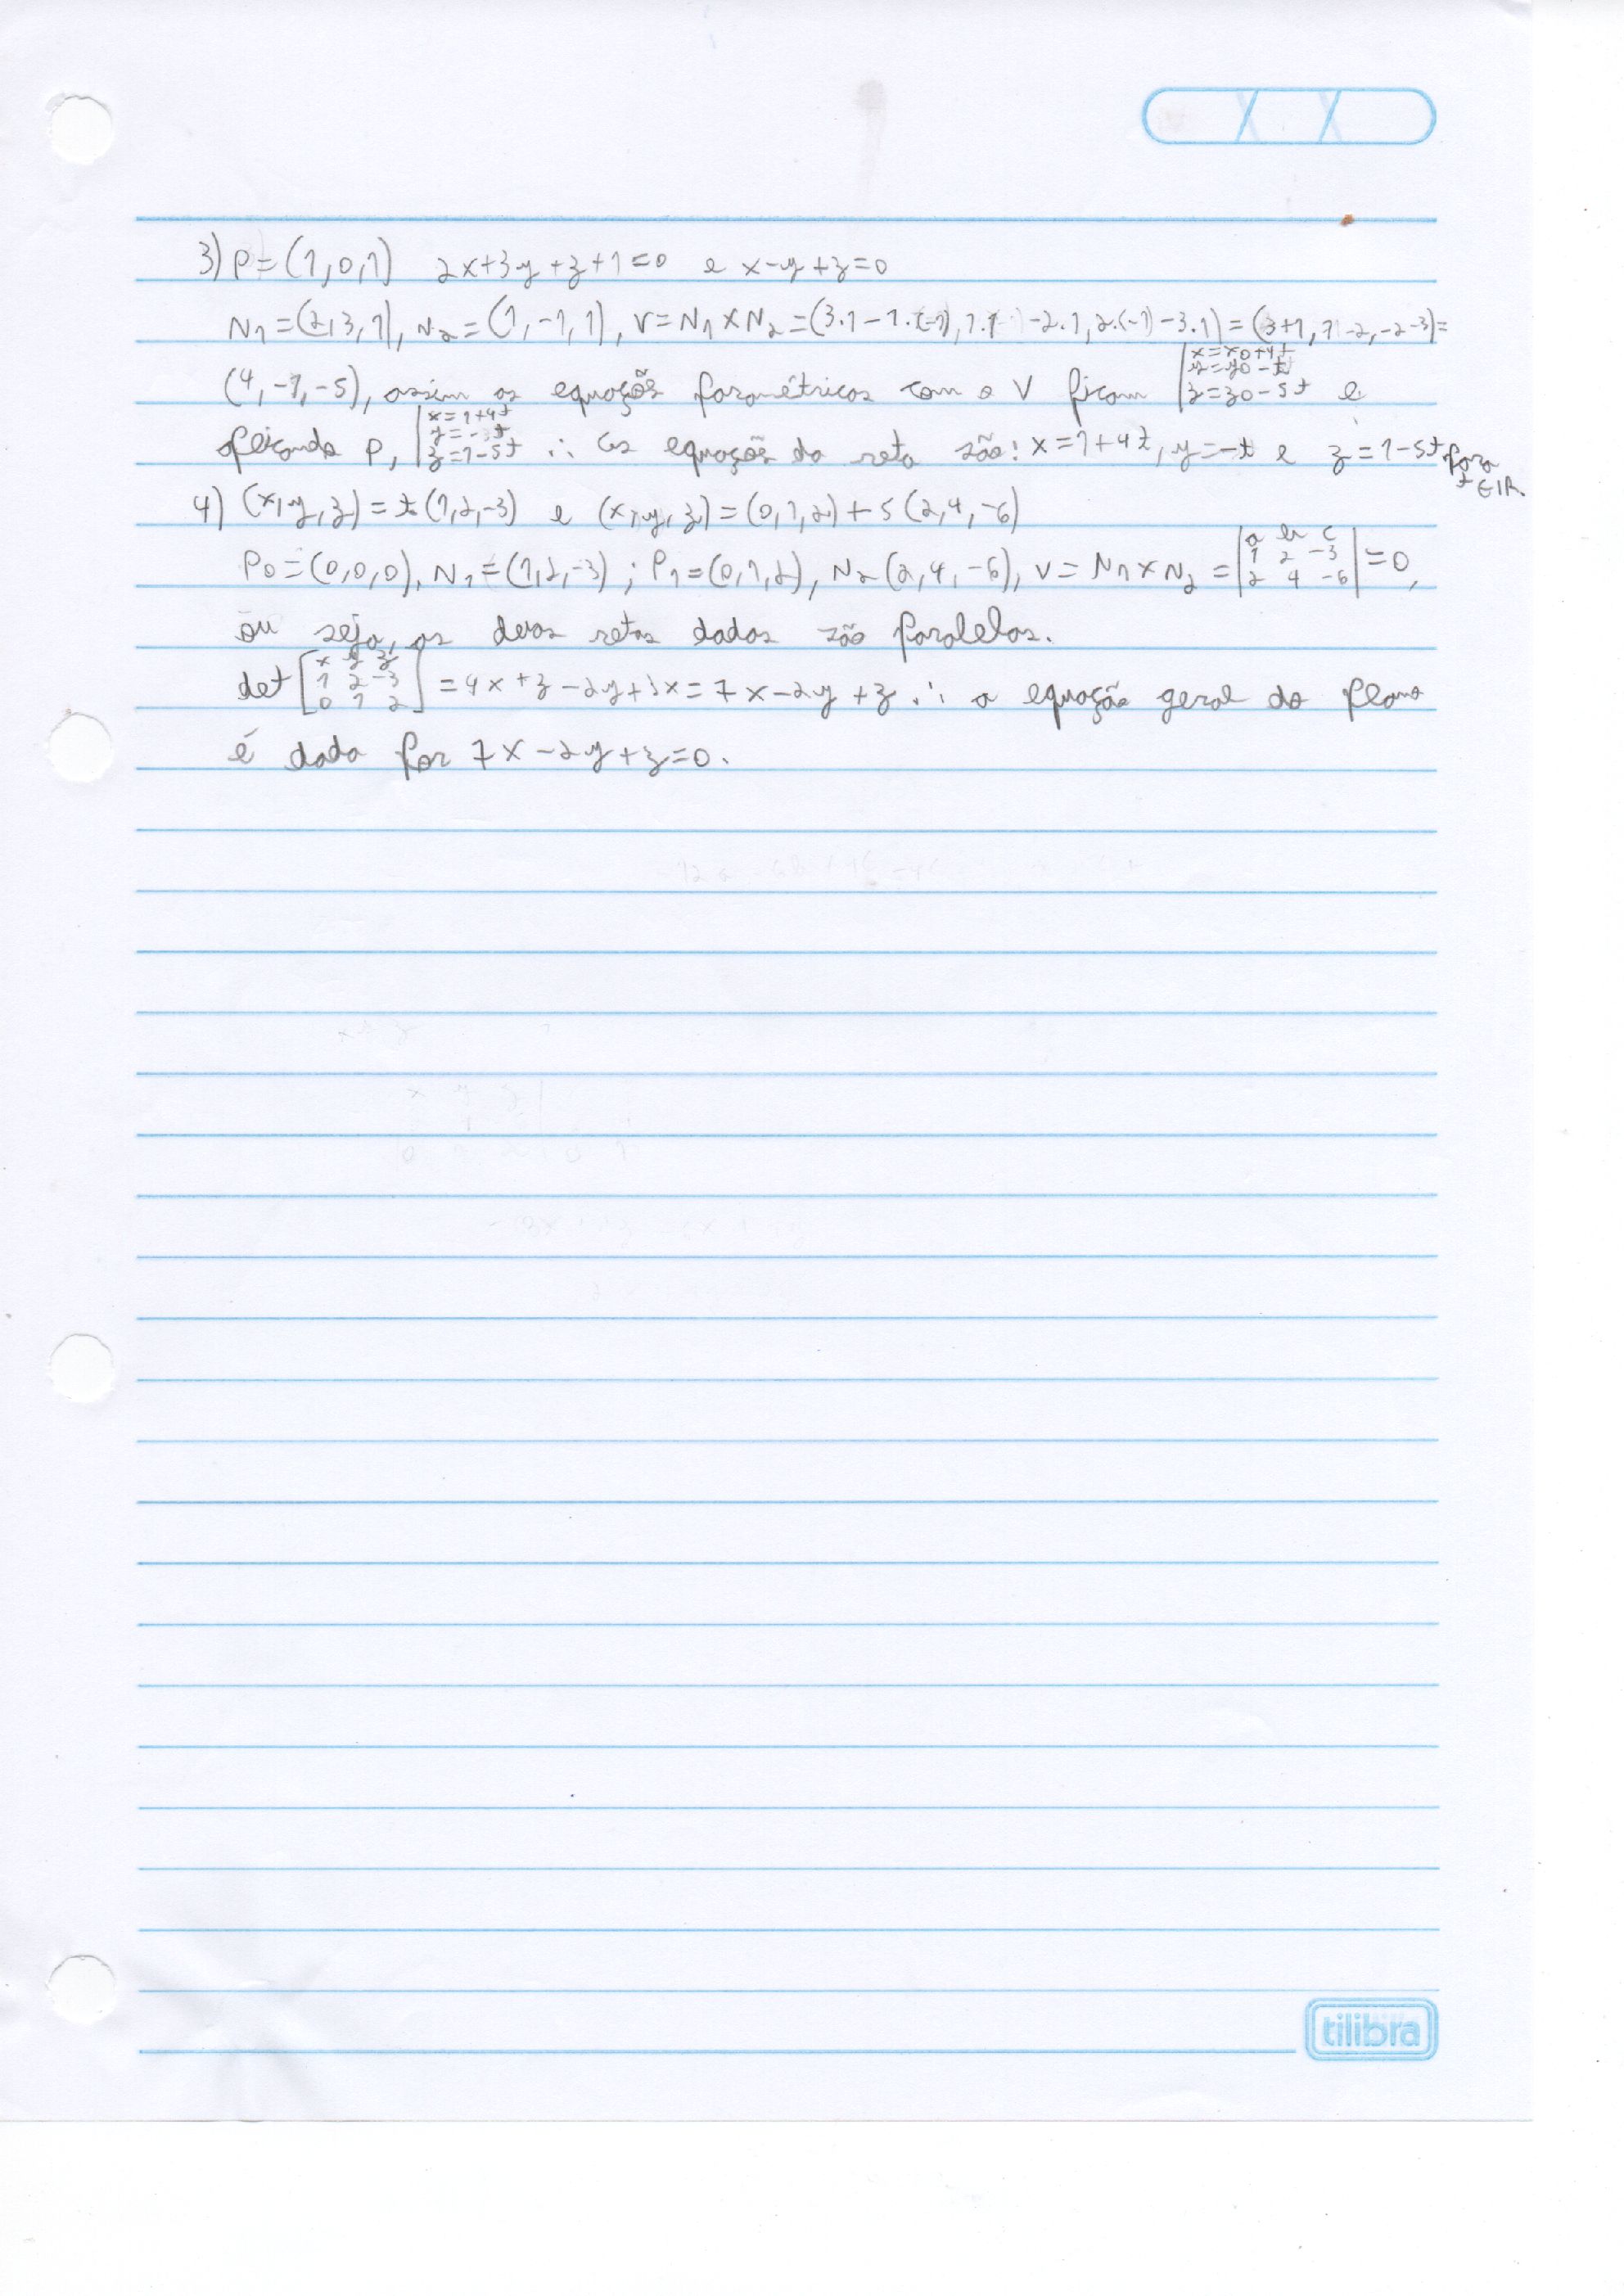 3) P=(1,0,1) 2x+3y+z+1=0 e x-y+z=0
N1=(2,3,1), N2=(1,-1,1), V=N1×N2=(3.1-1.(-1),1.1-2.1,2.(-1)-3.1)=(3+1,1-2,-2-3)=
(4,-1,-5), assim as equações paramétricas com o V ficam |x=x0+4t y=y0-t z=z0-5t e
aplicando P, |x=1+4t y=-t z=1-5t ∴ as equações da reta são: x=1+4t, y=-t e z=1-5t para t∈IR.
4) (x,y,z)=t(1,2,-3) e (x,y,z)=(0,1,2)+s(2,4,-6)
P0=(0,0,0), N1=(1,2,-3); P1=(0,1,2), N2(2,4,-6), V=N1×N2=|a b c 1 2 -3 2 4 -6|=0,
ou seja, as duas retas dadas são paralelas.
det[x y z 1 2 -3 0 1 2]=4x+z-2y+3x=7x-2y+z ∴ a equação geral do plano
é dada por 7x-2y+z=0.
tilibra